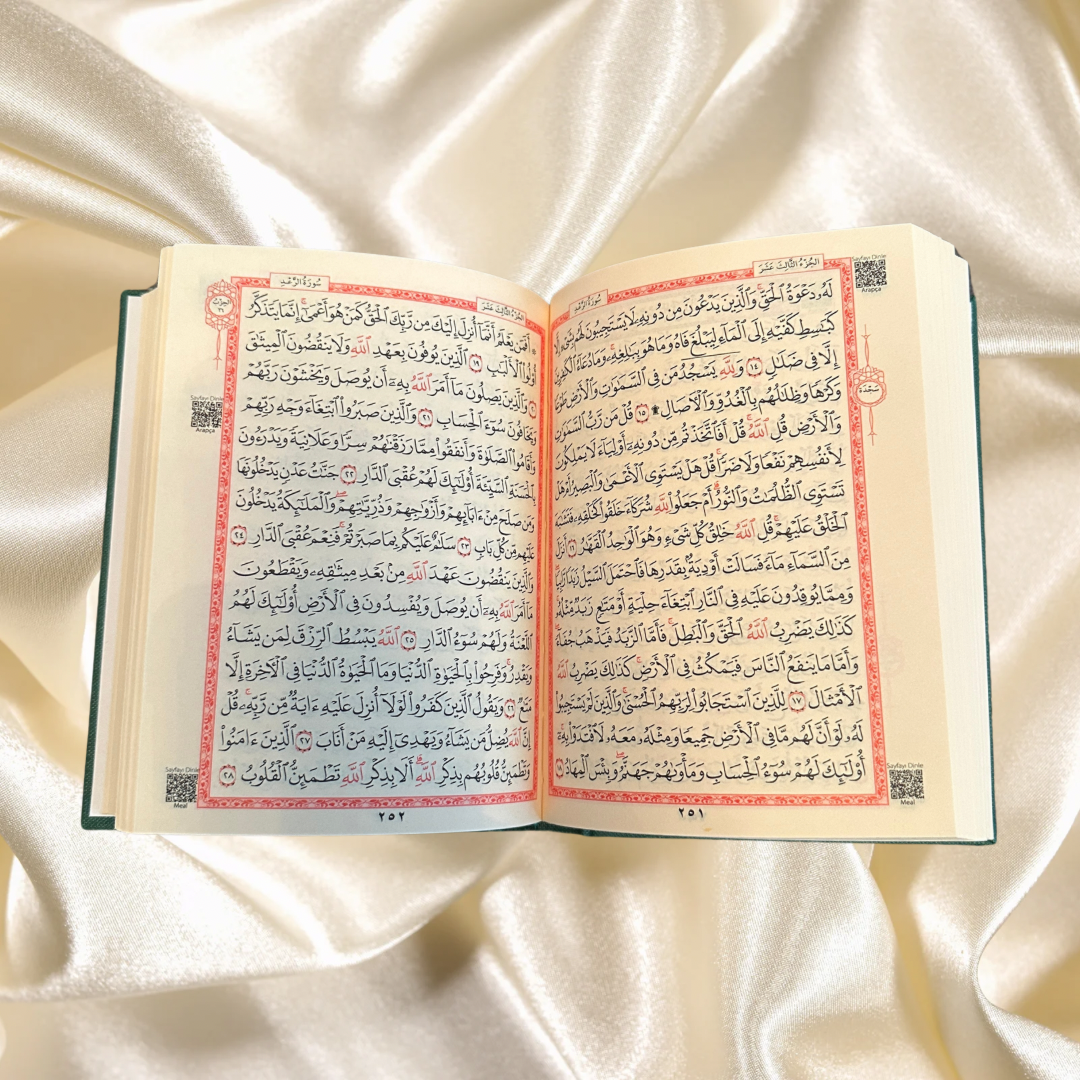 الجُزْءُ الثَّالِثَ عَشَرَ
سُورَةُ الرَّعْدِ
Sayfayı Dinle
Arapça
لَهُۥ دَعْوَةُ ٱلْحَقِّۖ وَٱلَّذِينَ يَدْعُونَ مِن دُونِهِۦ لَا يَسْتَجِيبُونَ لَهُم بِشَىْءٍ إِلَّا
كَبَٰسِطِ كَفَّيْهِ إِلَى ٱلْمَآءِ لِيَبْلُغَ فَاهُ وَمَا هُوَ بِبَٰلِغِهِۦۚ وَمَا دُعَآءُ ٱلْكَٰفِرِينَ
إِلَّا فِى ضَلَٰلٍ ١٤ وَلِلَّهِ يَسْجُدُ مَن فِى ٱلسَّمَٰوَٰتِ وَٱلْأَرْضِ طَوْعًا
وَكَرْهًا وَظِلَٰلُهُم بِٱلْغُدُوِّ وَٱلْءَاصَالِ ۩ ١٥ قُلْ مَن رَّبُّ ٱلسَّمَٰوَٰتِ
وَٱلْأَرْضِ قُلِ ٱللَّهُۚ قُلْ أَفَٱتَّخَذْتُم مِّن دُونِهِۦٓ أَوْلِيَآءَ لَا يَمْلِكُونَ
لِأَنفُسِهِمْ نَفْعًا وَلَا ضَرًّاۚ قُلْ هَلْ يَسْتَوِى ٱلْأَعْمَىٰ وَٱلْبَصِيرُ أَمْ هَلْ
تَسْتَوِى ٱلظُّلُمَٰتُ وَٱلنُّورُۗ أَمْ جَعَلُوا۟ لِلَّهِ شُرَكَآءَ خَلَقُوا۟ كَخَلْقِهِۦ فَتَشَٰبَهَ
ٱلْخَلْقُ عَلَيْهِمْۚ قُلِ ٱللَّهُ خَٰلِقُ كُلِّ شَىْءٍ وَهُوَ ٱلْوَٰحِدُ ٱلْقَهَّٰرُ ١٦ أَنزَلَ
مِنَ ٱلسَّمَآءِ مَآءً فَسَالَتْ أَوْدِيَةٌۢ بِقَدَرِهَا فَٱحْتَمَلَ ٱلسَّيْلُ زَبَدًا رَّابِيًاۚ
وَمِمَّا يُوقِدُونَ عَلَيْهِ فِى ٱلنَّارِ ٱبْتِغَآءَ حِلْيَةٍ أَوْ مَتَٰعٍ زَبَدٌ مِّثْلُهُۥۚ
كَذَٰلِكَ يَضْرِبُ ٱللَّهُ ٱلْحَقَّ وَٱلْبَٰطِلَۚ فَأَمَّا ٱلزَّبَدُ فَيَذْهَبُ جُفَآءًۖ
وَأَمَّا مَا يَنفَعُ ٱلنَّاسَ فَيَمْكُثُ فِى ٱلْأَرْضِۚ كَذَٰلِكَ يَضْرِبُ ٱللَّهُ
ٱلْأَمْثَالَ ١٧ لِلَّذِينَ ٱسْتَجَابُوا۟ لِرَبِّهِمُ ٱلْحُسْنَىٰۚ وَٱلَّذِينَ لَمْ يَسْتَجِيبُوا۟
لَهُۥ لَوْ أَنَّ لَهُم مَّا فِى ٱلْأَرْضِ جَمِيعًا وَمِثْلَهُۥ مَعَهُۥ لَٱفْتَدَوْا۟ بِهِۦٓۚ
أُو۟لَٰٓئِكَ لَهُمْ سُوٓءُ ٱلْحِسَابِ وَمَأْوَىٰهُمْ جَهَنَّمُۖ وَبِئْسَ ٱلْمِهَادُ ١٨
سَجْدَة
Sayfayı Dinle
Meal
٢٥١
الجُزْءُ الثَّالِثَ عَشَرَ
سُورَةُ الرَّعْدِ
۞ أَفَمَن يَعْلَمُ أَنَّمَآ أُنزِلَ إِلَيْكَ مِن رَّبِّكَ ٱلْحَقُّ كَمَنْ هُوَ أَعْمَىٰٓۚ إِنَّمَا يَتَذَكَّرُ
أُو۟لُوا۟ ٱلْأَلْبَٰبِ ١٩ ٱلَّذِينَ يُوفُونَ بِعَهْدِ ٱللَّهِ وَلَا يَنقُضُونَ ٱلْمِيثَٰقَ
٢٠ وَٱلَّذِينَ يَصِلُونَ مَآ أَمَرَ ٱللَّهُ بِهِۦٓ أَن يُوصَلَ وَيَخْشَوْنَ رَبَّهُمْ
وَيَخَافُونَ سُوٓءَ ٱلْحِسَابِ ٢١ وَٱلَّذِينَ صَبَرُوا۟ ٱبْتِغَآءَ وَجْهِ رَبِّهِمْ
وَأَقَامُوا۟ ٱلصَّلَوٰةَ وَأَنفَقُوا۟ مِمَّا رَزَقْنَٰهُمْ سِرًّا وَعَلَانِيَةً وَيَدْرَءُونَ
بِٱلْحَسَنَةِ ٱلسَّيِّئَةَ أُو۟لَٰٓئِكَ لَهُمْ عُقْبَى ٱلدَّارِ ٢٢ جَنَّٰتُ عَدْنٍ يَدْخُلُونَهَا
وَمَن صَلَحَ مِنْ ءَابَآئِهِمْ وَأَزْوَٰجِهِمْ وَذُرِّيَّٰتِهِمْۖ وَٱلْمَلَٰٓئِكَةُ يَدْخُلُونَ
عَلَيْهِم مِّن كُلِّ بَابٍ ٢٣ سَلَٰمٌ عَلَيْكُم بِمَا صَبَرْتُمْۚ فَنِعْمَ عُقْبَى ٱلدَّارِ ٢٤
وَٱلَّذِينَ يَنقُضُونَ عَهْدَ ٱللَّهِ مِنۢ بَعْدِ مِيثَٰقِهِۦ وَيَقْطَعُونَ
مَآ أَمَرَ ٱللَّهُ بِهِۦٓ أَن يُوصَلَ وَيُفْسِدُونَ فِى ٱلْأَرْضِۙ أُو۟لَٰٓئِكَ لَهُمُ
ٱللَّعْنَةُ وَلَهُمْ سُوٓءُ ٱلدَّارِ ٢٥ ٱللَّهُ يَبْسُطُ ٱلرِّزْقَ لِمَن يَشَآءُ
وَيَقْدِرُۚ وَفَرِحُوا۟ بِٱلْحَيَوٰةِ ٱلدُّنْيَا وَمَا ٱلْحَيَوٰةُ ٱلدُّنْيَا فِى ٱلْءَاخِرَةِ إِلَّا
مَتَٰعٌ ٢٦ وَيَقُولُ ٱلَّذِينَ كَفَرُوا۟ لَوْلَآ أُنزِلَ عَلَيْهِ ءَايَةٌ مِّن رَّبِّهِۦۗ قُلْ
إِنَّ ٱللَّهَ يُضِلُّ مَن يَشَآءُ وَيَهْدِىٓ إِلَيْهِ مَنْ أَنَابَ ٢٧ ٱلَّذِينَ ءَامَنُوا۟
وَتَطْمَئِنُّ قُلُوبُهُم بِذِكْرِ ٱللَّهِۗ أَلَا بِذِكْرِ ٱللَّهِ تَطْمَئِنُّ ٱلْقُلُوبُ ٢٨
Sayfayı Dinle
Arapça
Sayfayı Dinle
Meal
٢٥٢